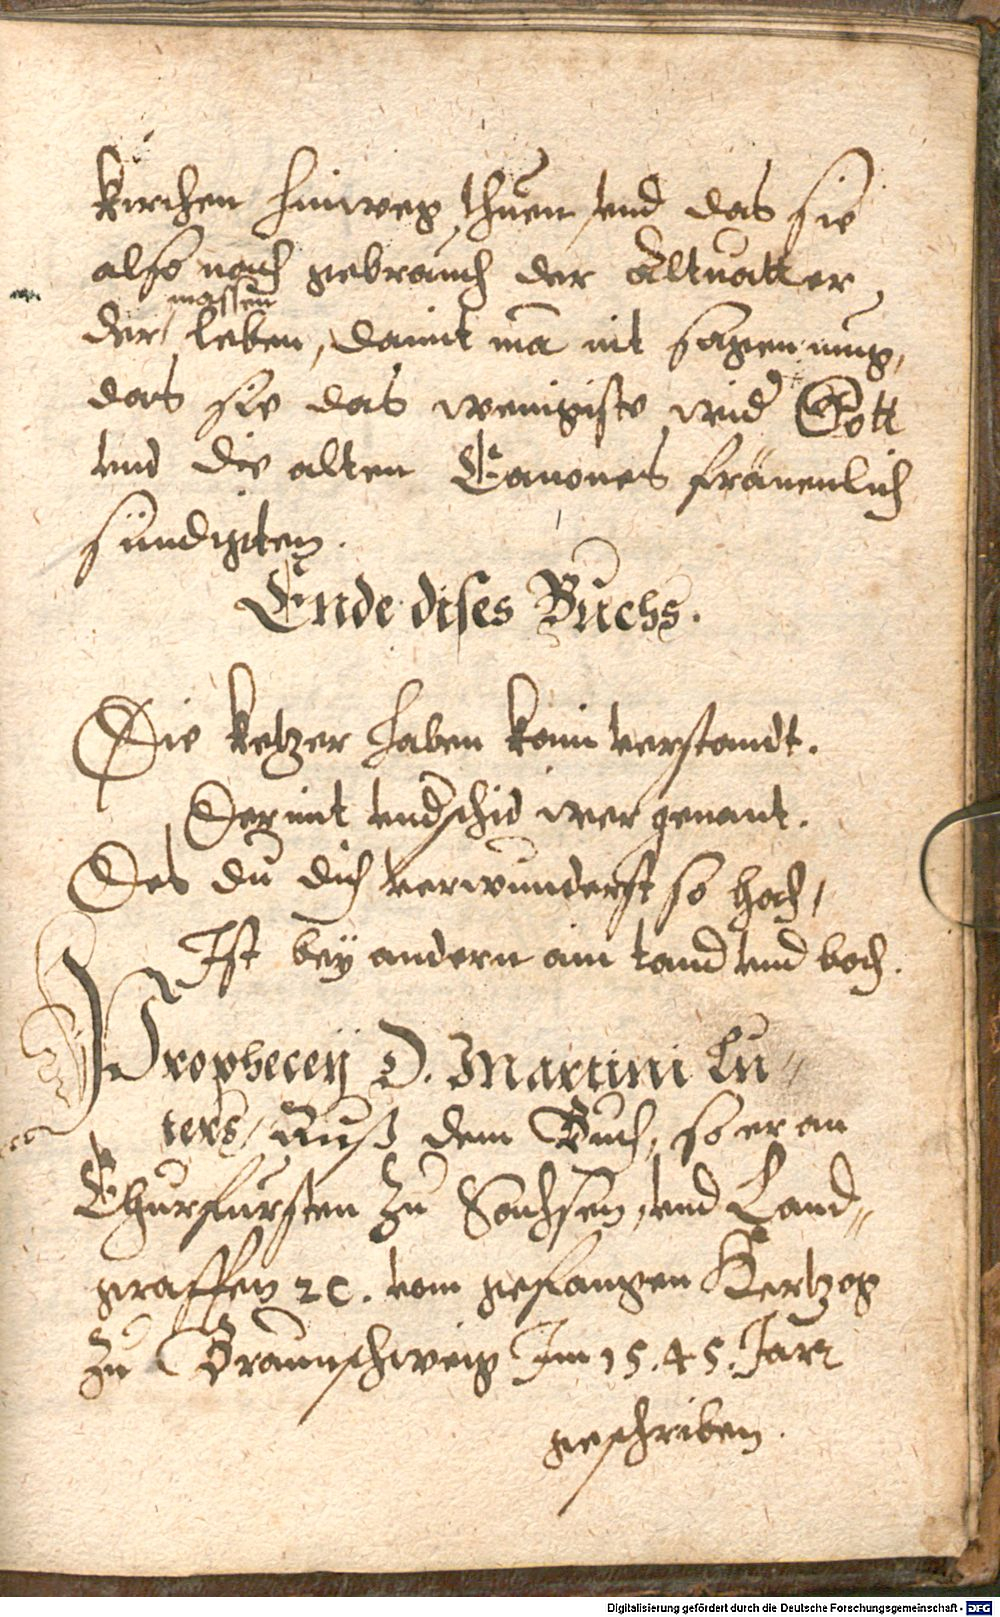 kirchen hinweg thuen vnd das sie
also nach gebrauch der Altuätter
massen
der leben, damit mā nit sagen mug,
das sie das wenigiste wid' Gott
vnd die alten Canones fräuenlich
sündigten.
Ende dises Buchs.
Die ketzer haben kain verstandt.
Der mit vnd'schid wer genant.
Des du dich verwunderst so hoch,
Ist bey andern ain tand vnd boch.
Prophecey D. Martini Lu⸗
ters, Auß dem Buch, so er an
Churfursten zu Sachsen, vnd Land⸗
graffen ꝛc. vom gefangen Hertzog
zu Braunschweig Im 15.45. Jar
geschriben.
Digitalisierung gefördert durch die Deutsche Forschungsgemeinschaft - DFG